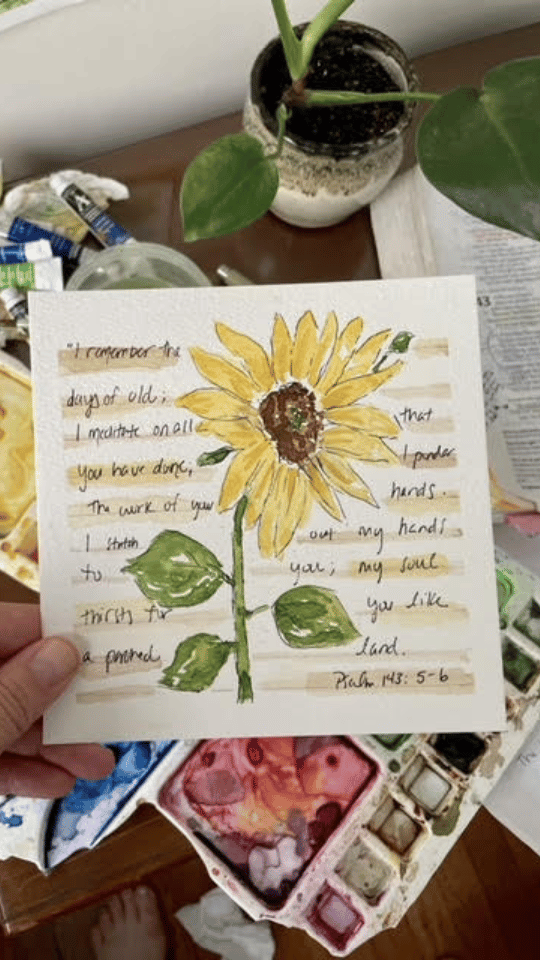 "I remember the
days of old;
I meditate on all that
you have done, I ponder
the work of your hands.
I stretch out my hands
to you; my soul
thirsts for you like
a parched land.
Psalm 143: 5-6
43